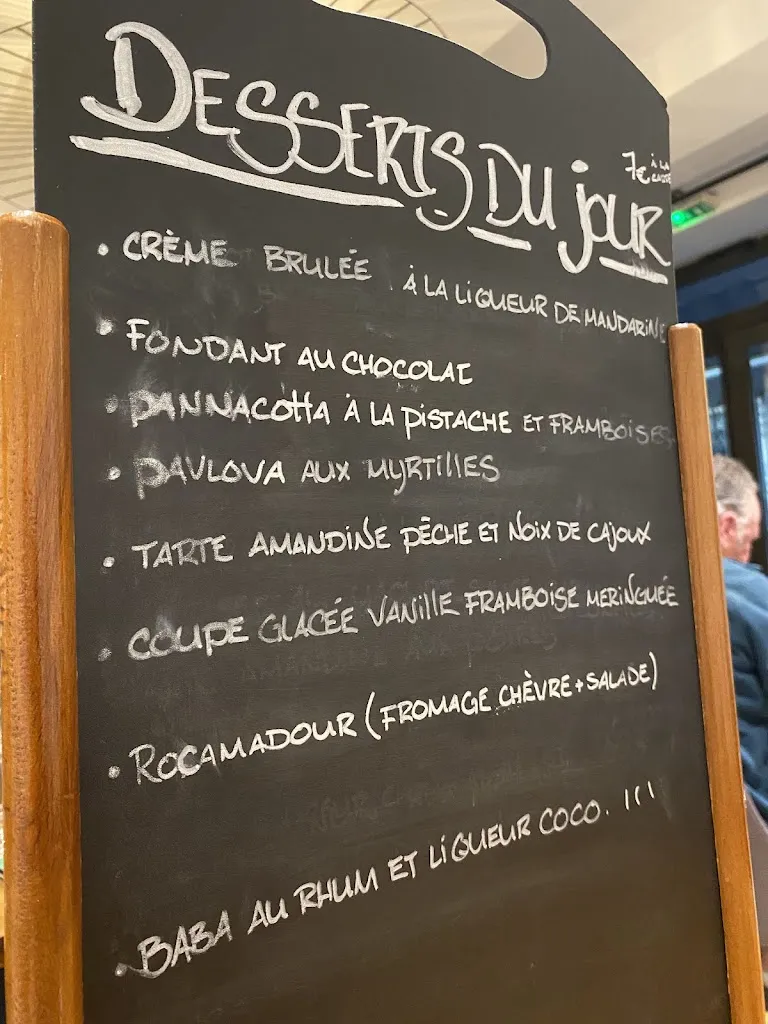 DESSERTS DU JOUR
7€ À LA CARTE
• CRÈME BRULÉE À LA LIQUEUR DE MANDARINE
• FONDANT AU CHOCOLAT
• PANNACOTTA À LA PISTACHE ET FRAMBOISES
• PAVLOVA AUX MYRTILLES
• TARTE AMANDINE PÊCHE ET NOIX DE CAJOUX
• COUPE GLACÉE VANILLE FRAMBOISE MERINGUÉE
• ROCAMADOUR (FROMAGE CHÈVRE + SALADE)
• BABA AU RHUM ET LIQUEUR COCO. !!!